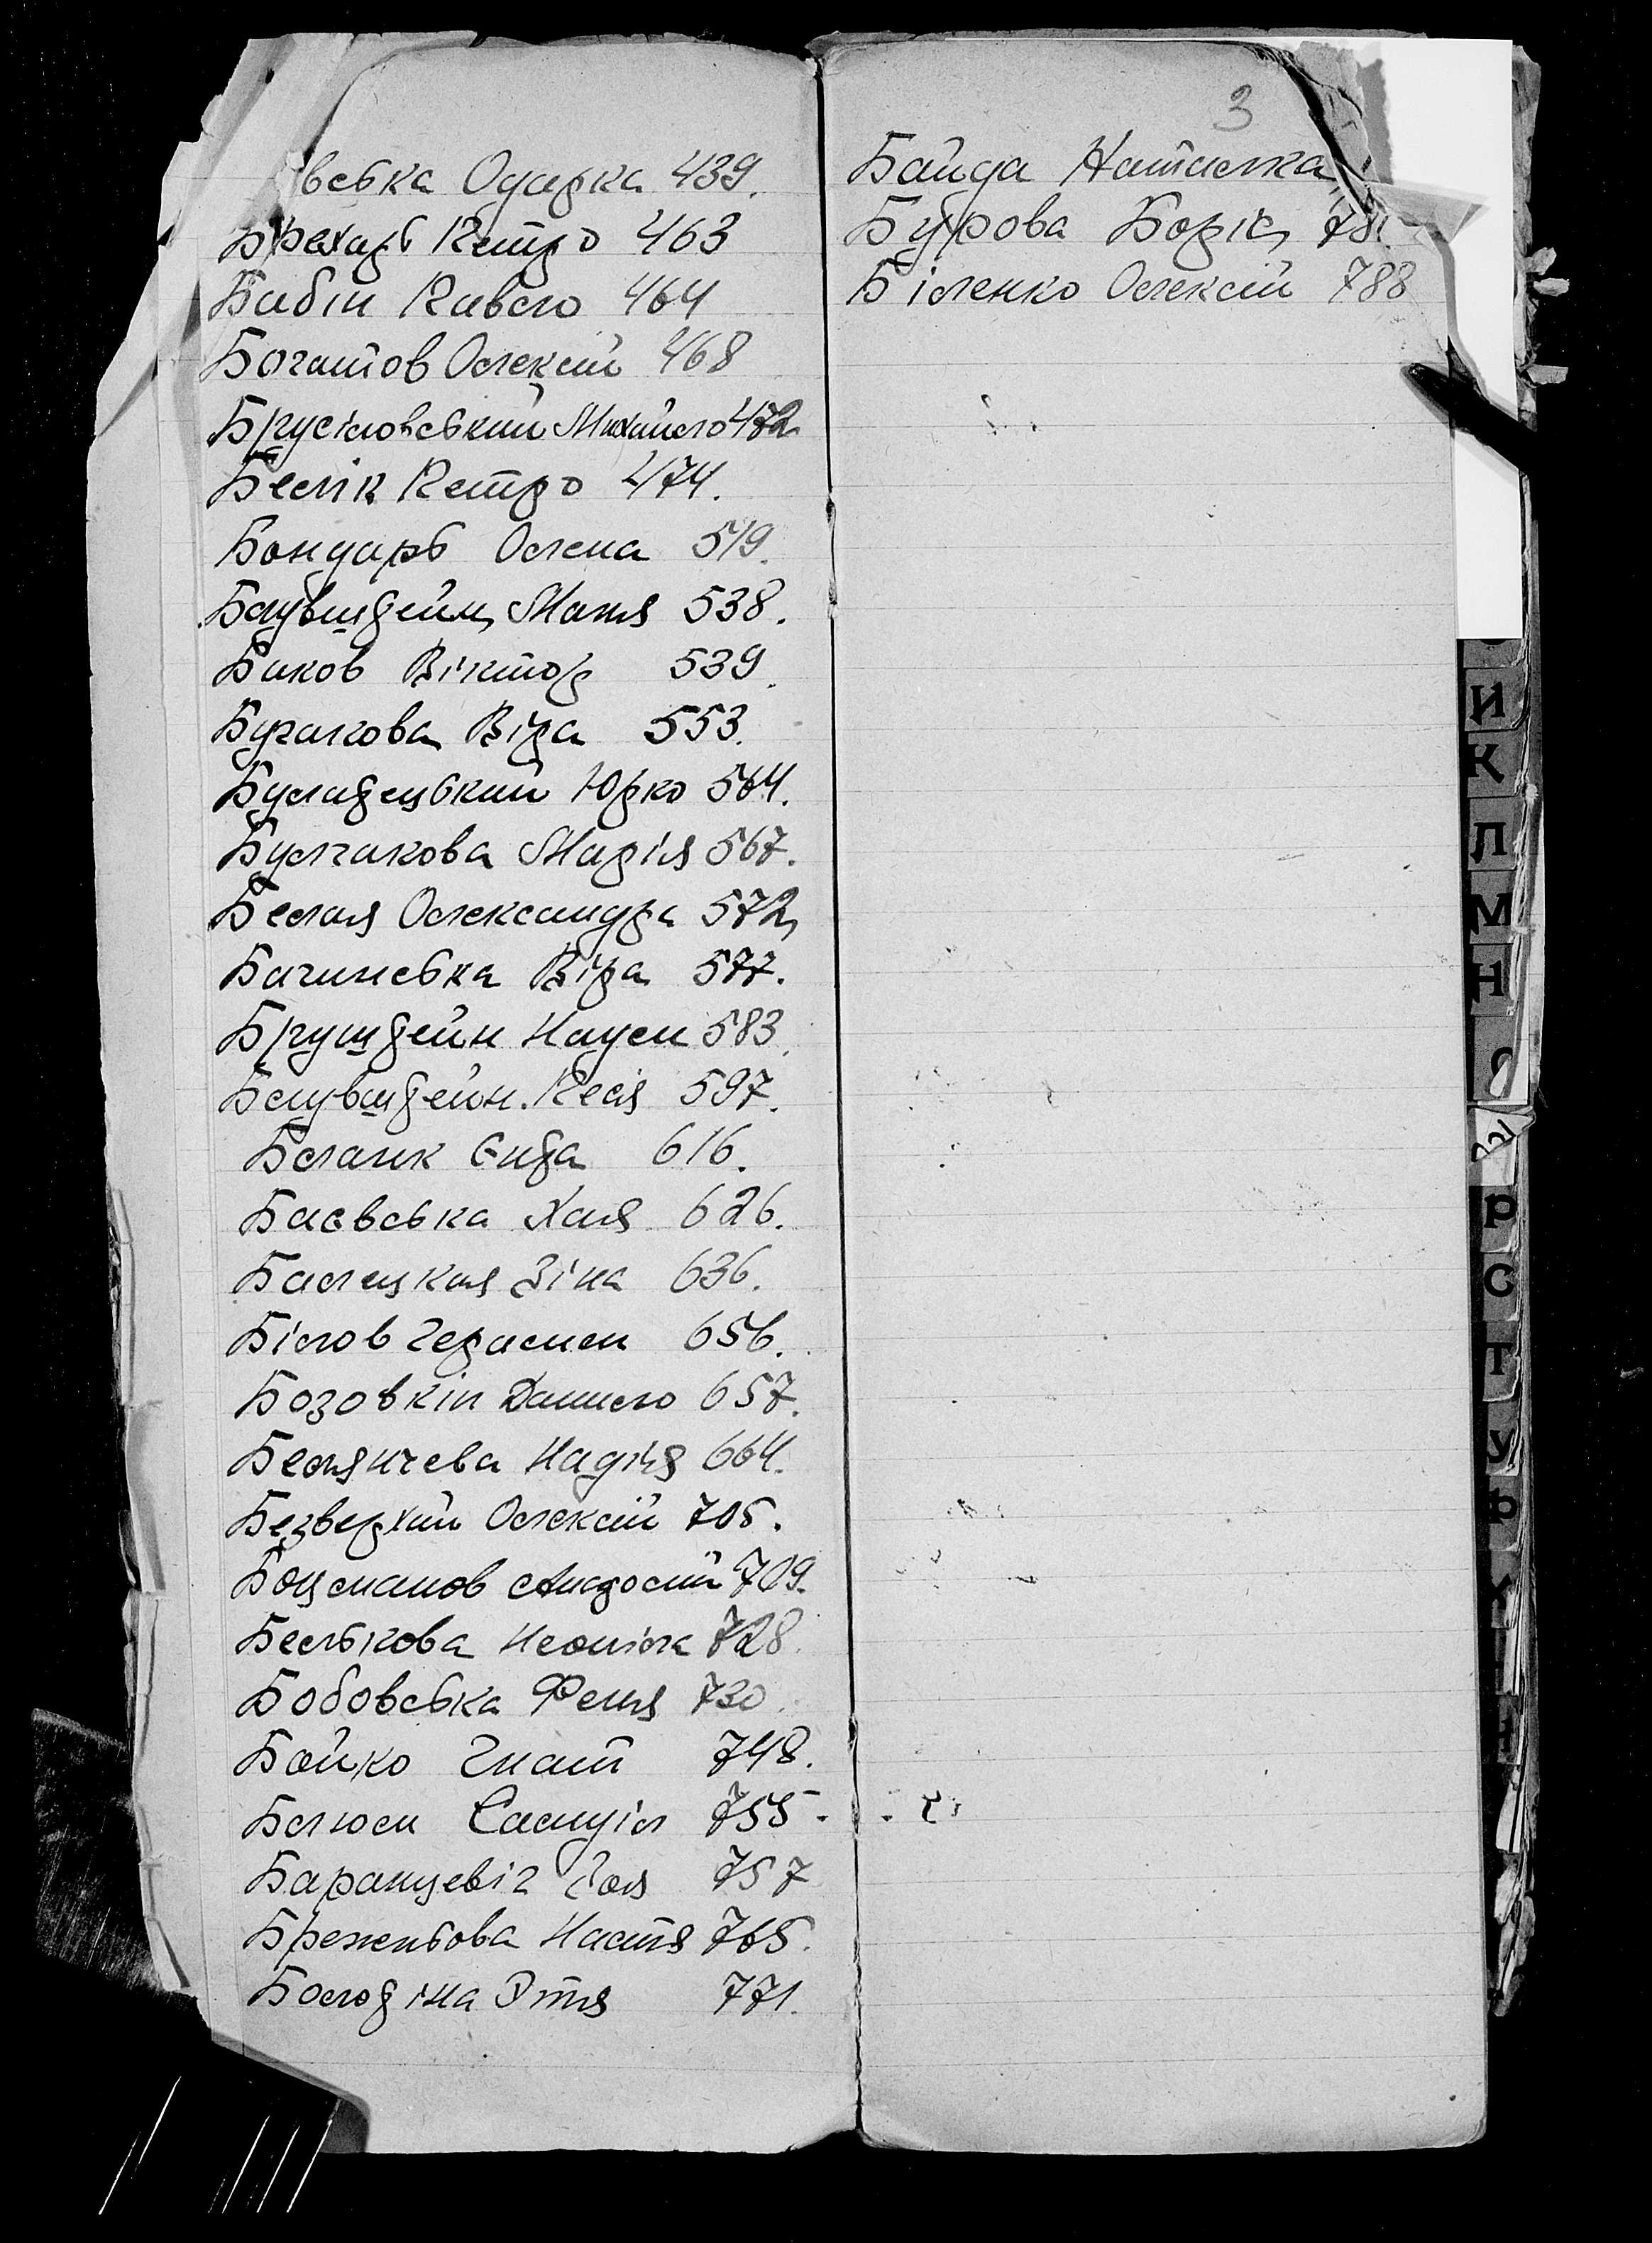 вська Одарка 439.
Брехарь Петро 463
Бабін Павло 464
Богатов Олексій 468
Брусіловський Михайло 472
Бєлік Петро 474.
Бондарь Олена 519.
Блувштейн Маня 538.
Биков Віктор 539.
Бугакова Віра 553.
Буладецький Юрко 564.
Булгакова Марія 567.
Белая Олександра 572
Бачинська Віра 577.
Бруштейн Наум 583.
Блувштейн Песя 597.
Бланк Єнта 616.
Баєвська Хая 626.
Балецкая Зіна 636.
Білов Герасим 656.
Бозовкін Данило 657.
Белячева Надія 664.
Безверхий Олексій 705.
Боцманов Андросій 709.
Белькова Неоніла 728.
Бобовська Феня 730.
Бойко Гнат 748.
Блюм Самуїл 755.
Баранцевіч Зоя 757
Бреженьова Настя 765.
Болодіна Этя 771.
3
Байда Наталка
Бурова Боріс 781
Біленко Олексій 788
И
К
Л
М
Н
О
Р
С
Т
У
Ф
Х